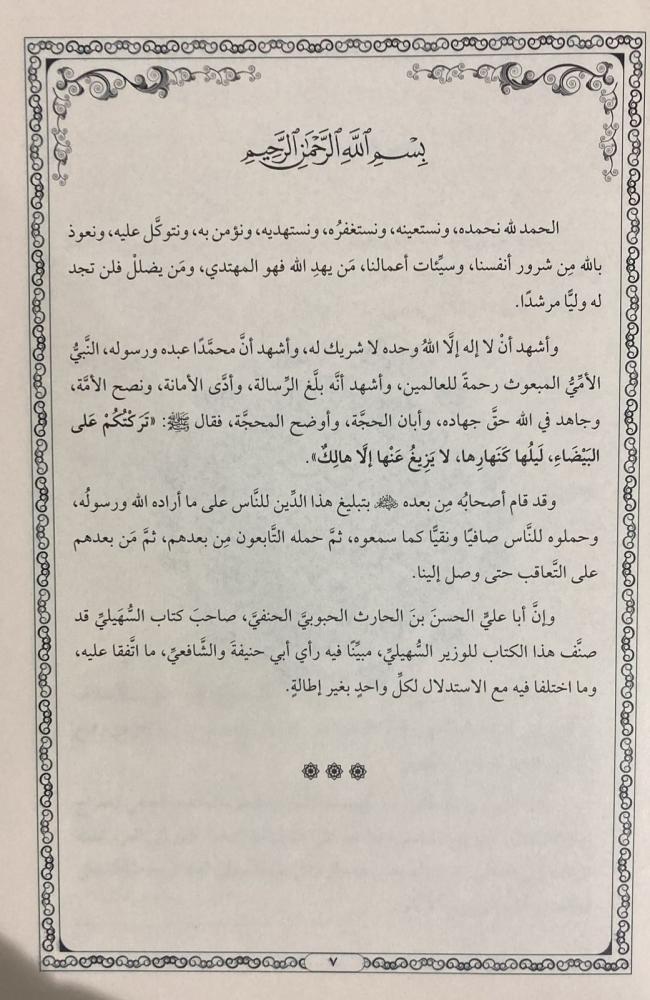 بِسْمِ ٱللَّهِ ٱلرَّحْمَٰنِ ٱلرَّحِيمِ
الحمد لله نحمده، ونستعينه، ونستغفرُه، ونستهديه، ونؤمن به، ونتوكَّل عليه، ونعوذ
بالله مِن شرور أنفسنا، وسيِّئات أعمالنا، مَن يهدِ الله فهو المهتدي، ومَن يضللْ فلن تجد
له وليًّا مرشدًا.
وأشهد أنْ لا إله إلَّا اللهُ وحده لا شريك له، وأشهد أنَّ محمَّدًا عبده ورسوله، النَّبيُّ
الأمِّيُّ المبعوث رحمةً للعالمين، وأشهد أنَّه بلَّغ الرِّسالة، وأدَّى الأمانة، ونصح الأمَّة،
وجاهد في الله حقَّ جهاده، وأبان الحجَّة، وأوضح المحجَّة، فقال ﷺ: «تَرَكْتُكُمْ عَلى
البَيْضَاءِ، لَيلُها كَنَهارِها، لا يَزِيغُ عَنْها إلَّا هالِكٌ».
وقد قام أصحابُه مِن بعده ﷺ بتبليغ هذا الدِّين للنَّاس على ما أراده الله ورسولُه،
وحملوه للنَّاس صافيًا ونقيًّا كما سمعوه، ثمَّ حمله التَّابعون مِن بعدهم، ثمَّ مَن بعدهم
على التَّعاقب حتى وصل إلينا.
وإنَّ أبا عليٍّ الحسنَ بنَ الحارث الحبوبيَّ الحنفيَّ، صاحبَ كتاب السُّهَيليِّ قد
صنَّف هذا الكتاب للوزير السُّهيليِّ، مبيِّنًا فيه رأي أبي حنيفةَ والشَّافعيِّ، ما اتَّفقا عليه،
وما اختلفا فيه مع الاستدلال لكلِّ واحدٍ بغير إطالةٍ.
٧